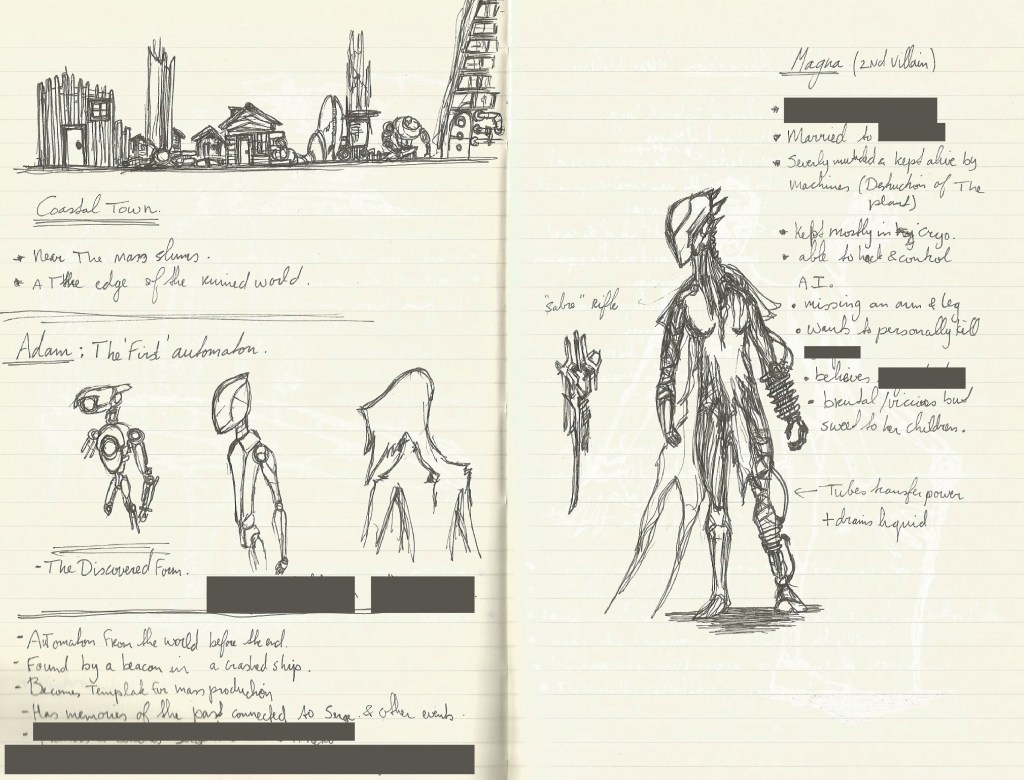 Coastal Town.
* Near The mass slums.
* AT the edge of the ruined world.
Adam: The 'First' automaton.
- The Discovered Form.
- Automaton From the world before the end.
- Found by a beacon in a crashed ship.
- Becomes Template for mass production
- Has memories of the past connected to & other events.
Magna (2nd Villain)
* Married to
* kept alive by
Machines (Destruction of The
plant)
* Kept mostly in cryo.
* able to hack & control
A.I.
• missing an arm & leg
• wants to personally kill
• believes
• /vicious but
sweet to her children.
"Sabre" Rifle
← Tubes transfer power
+ drains liquid